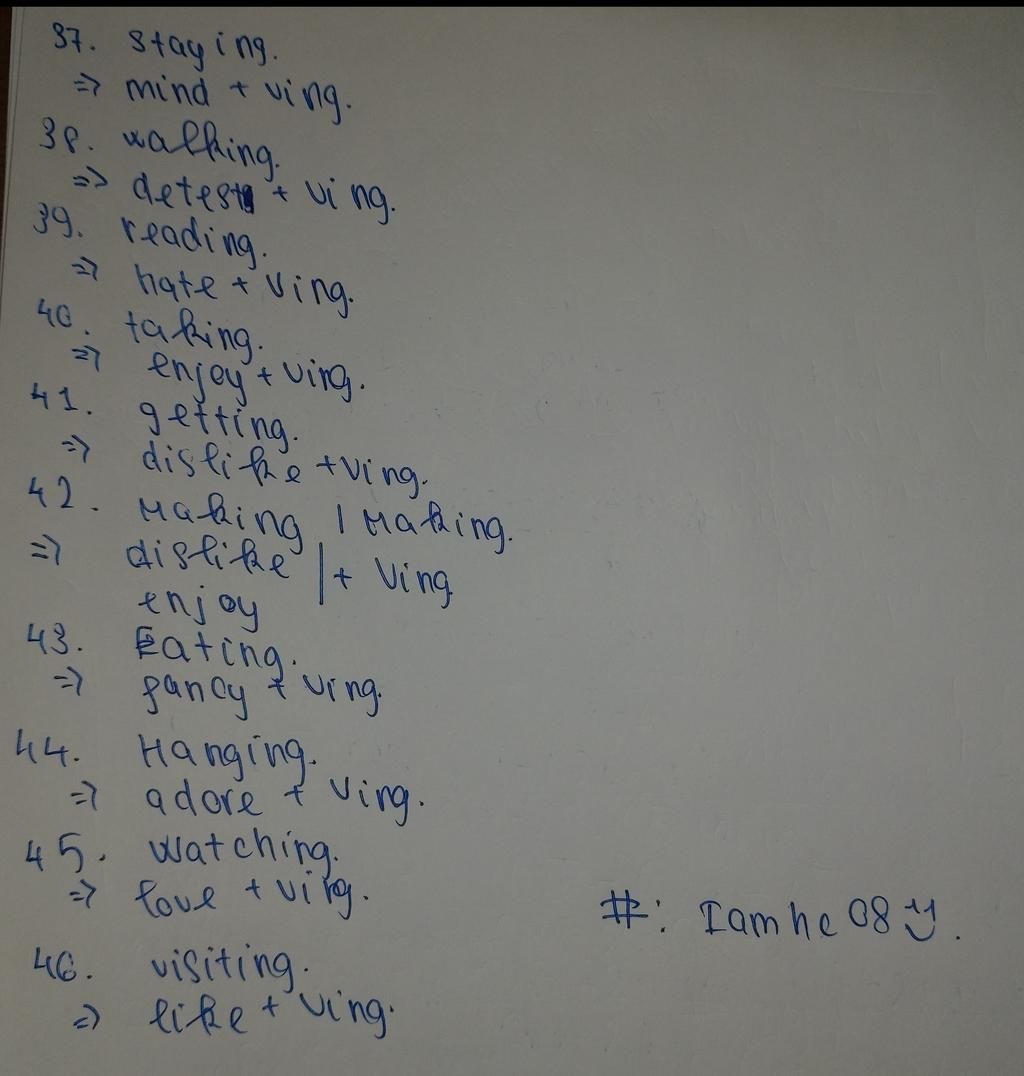 37. staying.
=> mind + ving.
38. walking.
=> detest + ving.
39. reading.
=> hate + ving.
40. taking.
=> enjoy + ving.
41. getting.
=> dislike + ving.
42. Making / Making.
=> dislike | + Ving
enjoy
43. Eating.
=> fancy + ving.
44. Hanging.
=> adore + ving.
45. watching.
=> love + ving.
#: Iamhe08
46. visiting.
=> like + ving.